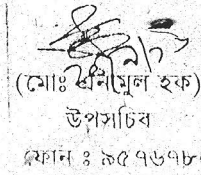 (মোঃ এনামুল হক)
উপসচিব
ফোন ঃ ৯৫৭৬৭৮